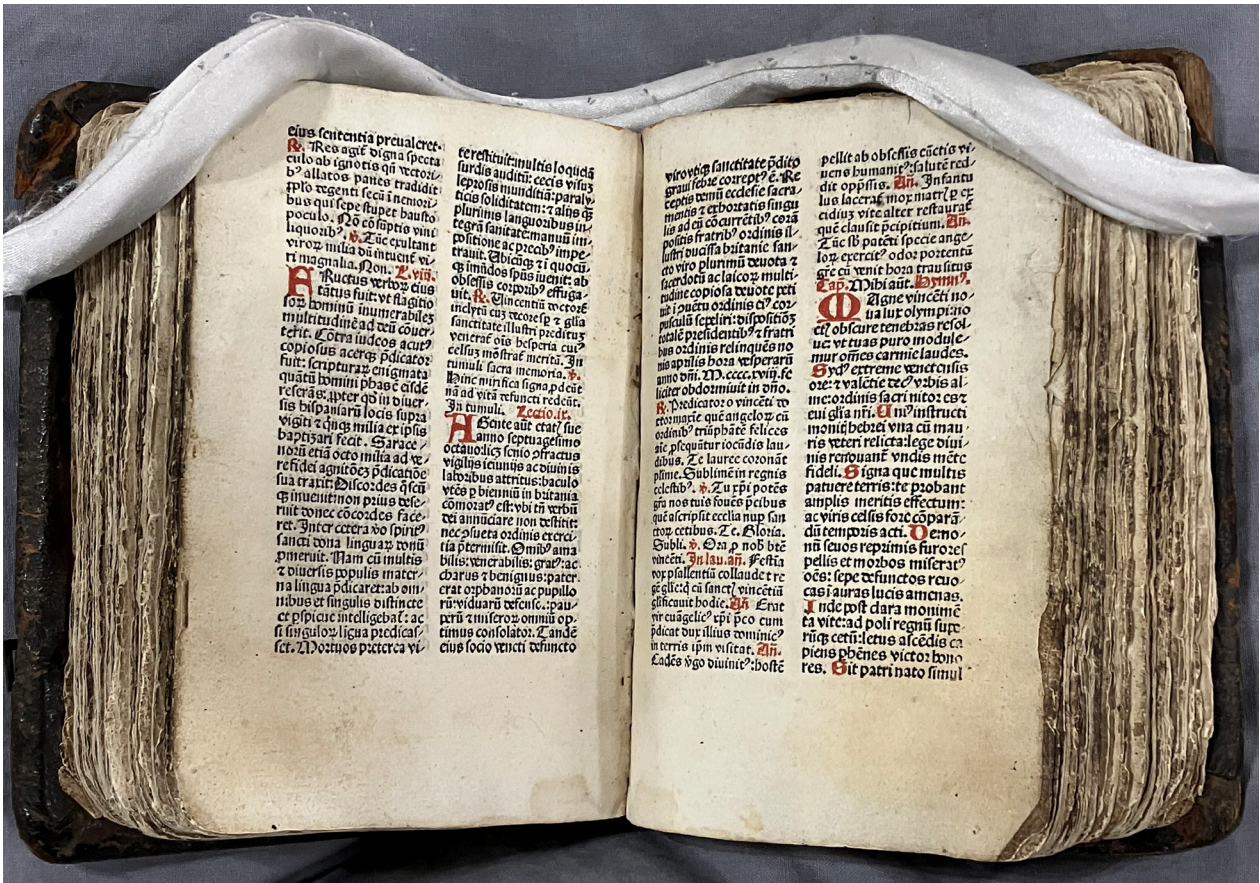 eius sententia preualeret.
℟. Res agit̄ digna specta
culo ab ignotis qn̄ vectori⸗
bꝰ allatos panes tradidit
pp̄lo degenti secū ī nemori⸗
bus qui sepe stupet hausto
poculo. Nō cōsūptis vini
liquoribꝰ. ℣. Tūc exultant
viroꝝ milia dū intuent̄ vi⸗
ri magnalia. Non. L. viij.
FRuctus verboꝝ eius
tātus fuit: vt flagitio
soꝝ hominū inumerabileꝫ
multitudinē ad deū cōuer⸗
terit. Cōtra iudeos acutꝰ
copiosus acerqꝫ p̄dicator
fuit: scripturaꝝ enigmata
quātū homini phas ē eisdē
reserās: ꝓpter qd̄ in diuer⸗
sis hispaniarū locis supra
viginti ⁊ qnqꝫ milia ex ipsis
baptizari fecit. Sarace⸗
norū etiā octo milia ad ve⸗
re fidei agnitōeꝫ p̄dicatiōe
sua traxit: Discordes qͦscū
qꝫ inuenit non prius dese⸗
ruit donec cōcordes face⸗
ret. Inter cetera v̄o spiritꝰ
sancti dona linguaꝝ donū
ꝓmeruit. Nam cū multis
⁊ diuersis populis mater⸗
na lingua p̄dicaret: ab om⸗
nibus et singulis distincte
et ꝑspicue intelligebat̄: ac
si singuloꝝ līgua predicas⸗
set. Mortuos preterea vi⸗
te restituit: multis loquelā
surdis auditū: cecis visuꝫ
leprosis munditiā: paraly⸗
ticis soliditatem: ⁊ alijs qꝫ
plurimis languoribus in⸗
tegrā sanitatē manuū im⸗
positione ac precibꝰ impe⸗
trauit. Ubicūqꝫ ⁊ i quocū⸗
qꝫ imūdos spūs iuenit: ab
obsessis corporibꝰ effuga⸗
uit. ℟. Uincentiū doctorē
inclytū cuꝫ decore sp̄ ⁊ glīa
sanctitate illustri preditū
venerat̄ oīs hesperia cuiꝰ
celsuꝫ mōstrat̄ meritū. In
tumuli sacra memoria. ℣.
Hinc mirifica signa ꝓdeūt
nā ad vitā defuncti redeūt.
In tumuli. Lectio.ix.
AGente aūt etatꝭ sue
anno septuagesimo
octauo: licꝫ senio ꝯfractus
vigilijs ieiunijs ac diuinis
laboribus attritus: baculo
vtēs ꝑ bienniū in britania
cōmoratꝰ est: vbi tn̄ verbū
dei annūciare non destitit:
nec ꝯsueta ordinis exerci⸗
tia p̄termisit. Omībꝰ ama
bilis: venerabilis: gratꝰ: ac
charus ⁊ benignus: pater
erat orphanorū ac pupillo
rū: viduarū defensor: pau⸗
perū ⁊ miseroꝝ omniū op⸗
timus consolator. Tandē
eius socio vencti defuncto
viro vtiqꝫ sanctitate p̄dito
graui febre correptꝰ ē. Re
ceptis demū ecclesie sacra⸗
mentis ⁊ exhortatis singu
lis ad eū cōcurrētibꝰ corā
positis fratribꝰ ordinis il⸗
lustri ducissa britanie san⸗
cto viro plurimū deuota ⁊
sacerdotū ac laicoꝝ multi⸗
tudine copiosa deuote peti
it i ꝯuētu ordinis eiꝰ cor⸗
pusculū sepeliri: dispositiōꝫ
totalē presidentibꝰ ⁊ fratri
bus ordinis relinquēs no
nis aprilis hora vesperarū
anno dn̄i. M.cccc.xviij. fe
liciter obdormiuit in dn̄o.
℟. Predicatoro vincēti do
ctor maxīe quē angeloꝝ cū
ordinibꝰ triūphātē felices
aīe ꝓsequūtur iocūdis lau⸗
dibus. Te lauree coronāt
plīme. Sublimē in regnis
celestibꝰ. ℣. Tu xp̄i potēs
gr̄a nos tuis foues p̄cibus
quē ascripsit ecclīa nup san
ctoꝝ cetibus. Te. Gloria.
Subli. ℣. Ora ꝓ nobꝭ btē
vincēti. In lau. an̄. Festīa
vox psallentiū collaudet re
gē glīe: q̄ cū sanctꝭ vincētiū
glificauit hodie. Añ. Erat
vir euāgelicꝰ xp̄i p̄co eum
p̄dicat dux illius dominicꝰ
in terris ip̄m visitat. Añ.
Cadēs v̄go diuinitꝰ: hostē
pellit ab obsessis cūctis vi⸗
uens humanitꝰ: salutē red⸗
dit opp̄ssis. Añ. Infantu
lus lacerat̄ mox matrꝭ ꝑ ex
cidiuꝫ vite alter restaurat̄
quē clausit p̄cipitium. Añ.
Tūc sb̄ patēti specie ange⸗
loꝝ exercitꝰ odor portentū
gr̄e cū venit hora trāsitus
Cap. Mihi aūt. Hymnꝰ.
MAgne vincēti no⸗
ua lux olympi: no
ctꝭ obscure tenebras resol⸗
ue: vt tuas puro module⸗
mur om̄es carmīe laudes.
Sydꝰ extreme venetensis
ore: ⁊ valētie decꝰ vrbis al⸗
me: ordinis sacri nitor es ⁊
eui glīa nr̄i. Unꝰ instructi
monitꝭ hebrei vna cū mau⸗
ris veteri relicta: lege diui⸗
nis renouant̄ vndis mēte
fideli. Signa que multis
patuere terris: te probant
amplis meritis effectum:
ac viris celsis fore cōparā⸗
dū temporis acti. Demo⸗
nū seuos reprimis furores
pellis et morbos miseratꝰ
oēs: sepe defunctos reuo⸗
cas i auras lucis amenas.
Inde post clara monimē
ta vite: ad poli regnū supe⸗
rūqꝫ cetū: letus ascēdis ca
piens phēnes victor hono
res. Sit patri nato simul